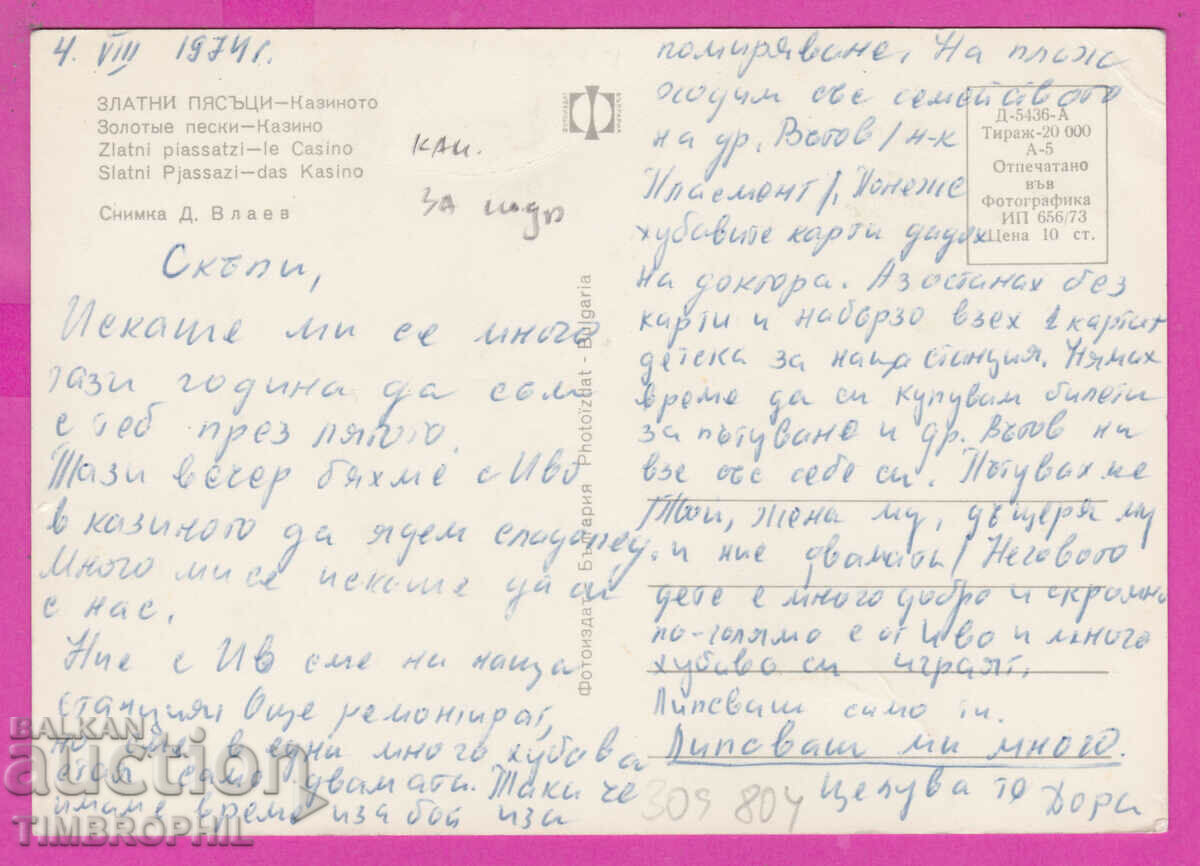 4. VIII 1974 г.
ЗЛАТНИ ПЯСЪЦИ—Казиното
Золотые пески—Казино
Zlatni piassatzi—le Casino
Slatni Pjassazi—das Kasino
Снимка Д. Влаев
кап.
за
Скъпи,
Искаше ми се много
тази година да съм
с теб през лятото.
Тази вечер бяхме с Иво
в казиното да ядем сладолед.
Много ми се искаше да си
с нас.
Ние с Ив сме на наша
станция. Още ремонтират,
но сме в една много хубава
стая само двамата. Така че
имаме време и за бой и за
помиряване. На плажа
ходим със семейството
на др. Вътов /н-к
Пласмент/. Понеже
хубавите карти дадох
на доктора. Аз останах без
карти и набързо взех 1 карта +
детска за наша станция. Нямах
време да си купувам билети
за пътуване и др. Вътов ни
взе със себе си. Пътувахме
/Той, жена му, дъщеря му
и ние двамата/ Неговото
дете е много добро и скромно
по-голямо е от Иво и много
хубаво си играят.
Липсваш само ти.
Липсваш ми много.
Целува те Дора
ФОТОИЗДАТ
БЪЛГАРИЯ
Фотоиздат България Photoïzdat - Bulgaria
Д-5436-А
Тираж-20 000
А-5
Отпечатано
във
Фотографика
ИП 656/73
Цена 10 ст.
309 804
BALKAN
auction
TIMBROPHIL